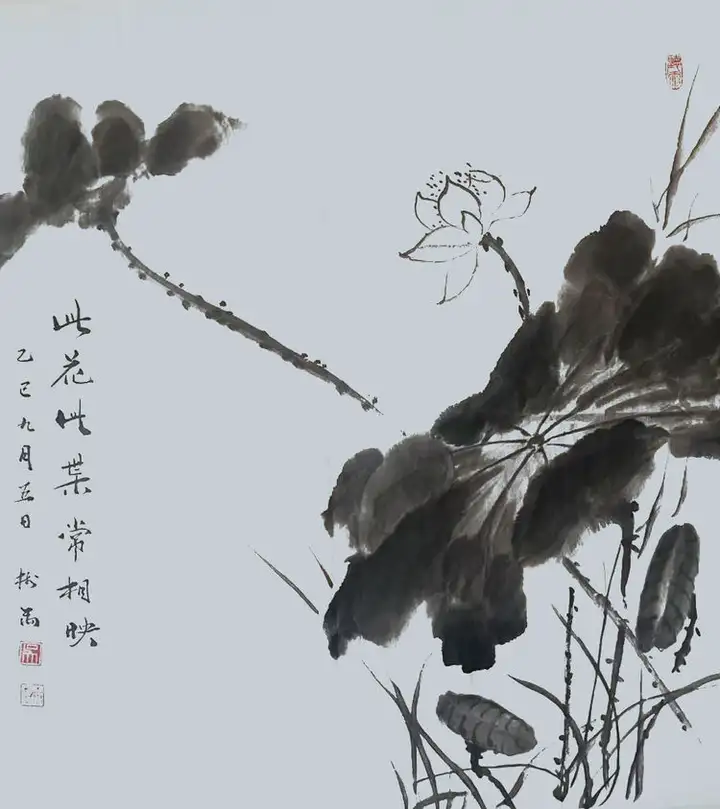 此花此葉常相映
乙巳九月五日